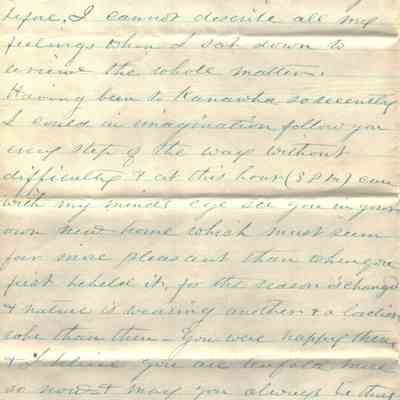 before, I cannot describe all my
feelings when I sat down to
review the whole matter.
Having been to Kanawha so recently
I could in imagination follow you
every step of the way without
difficulty & at this hour (3 P.M.) can
with my minds eye see you in your
own new home which must seem
far more pleasant than when you
first beheld it, for the season is changed
& nature is wearing another & a lovelier
robe than then - You were happy then
& I believe you are tenfold more
so now & may you always be thus